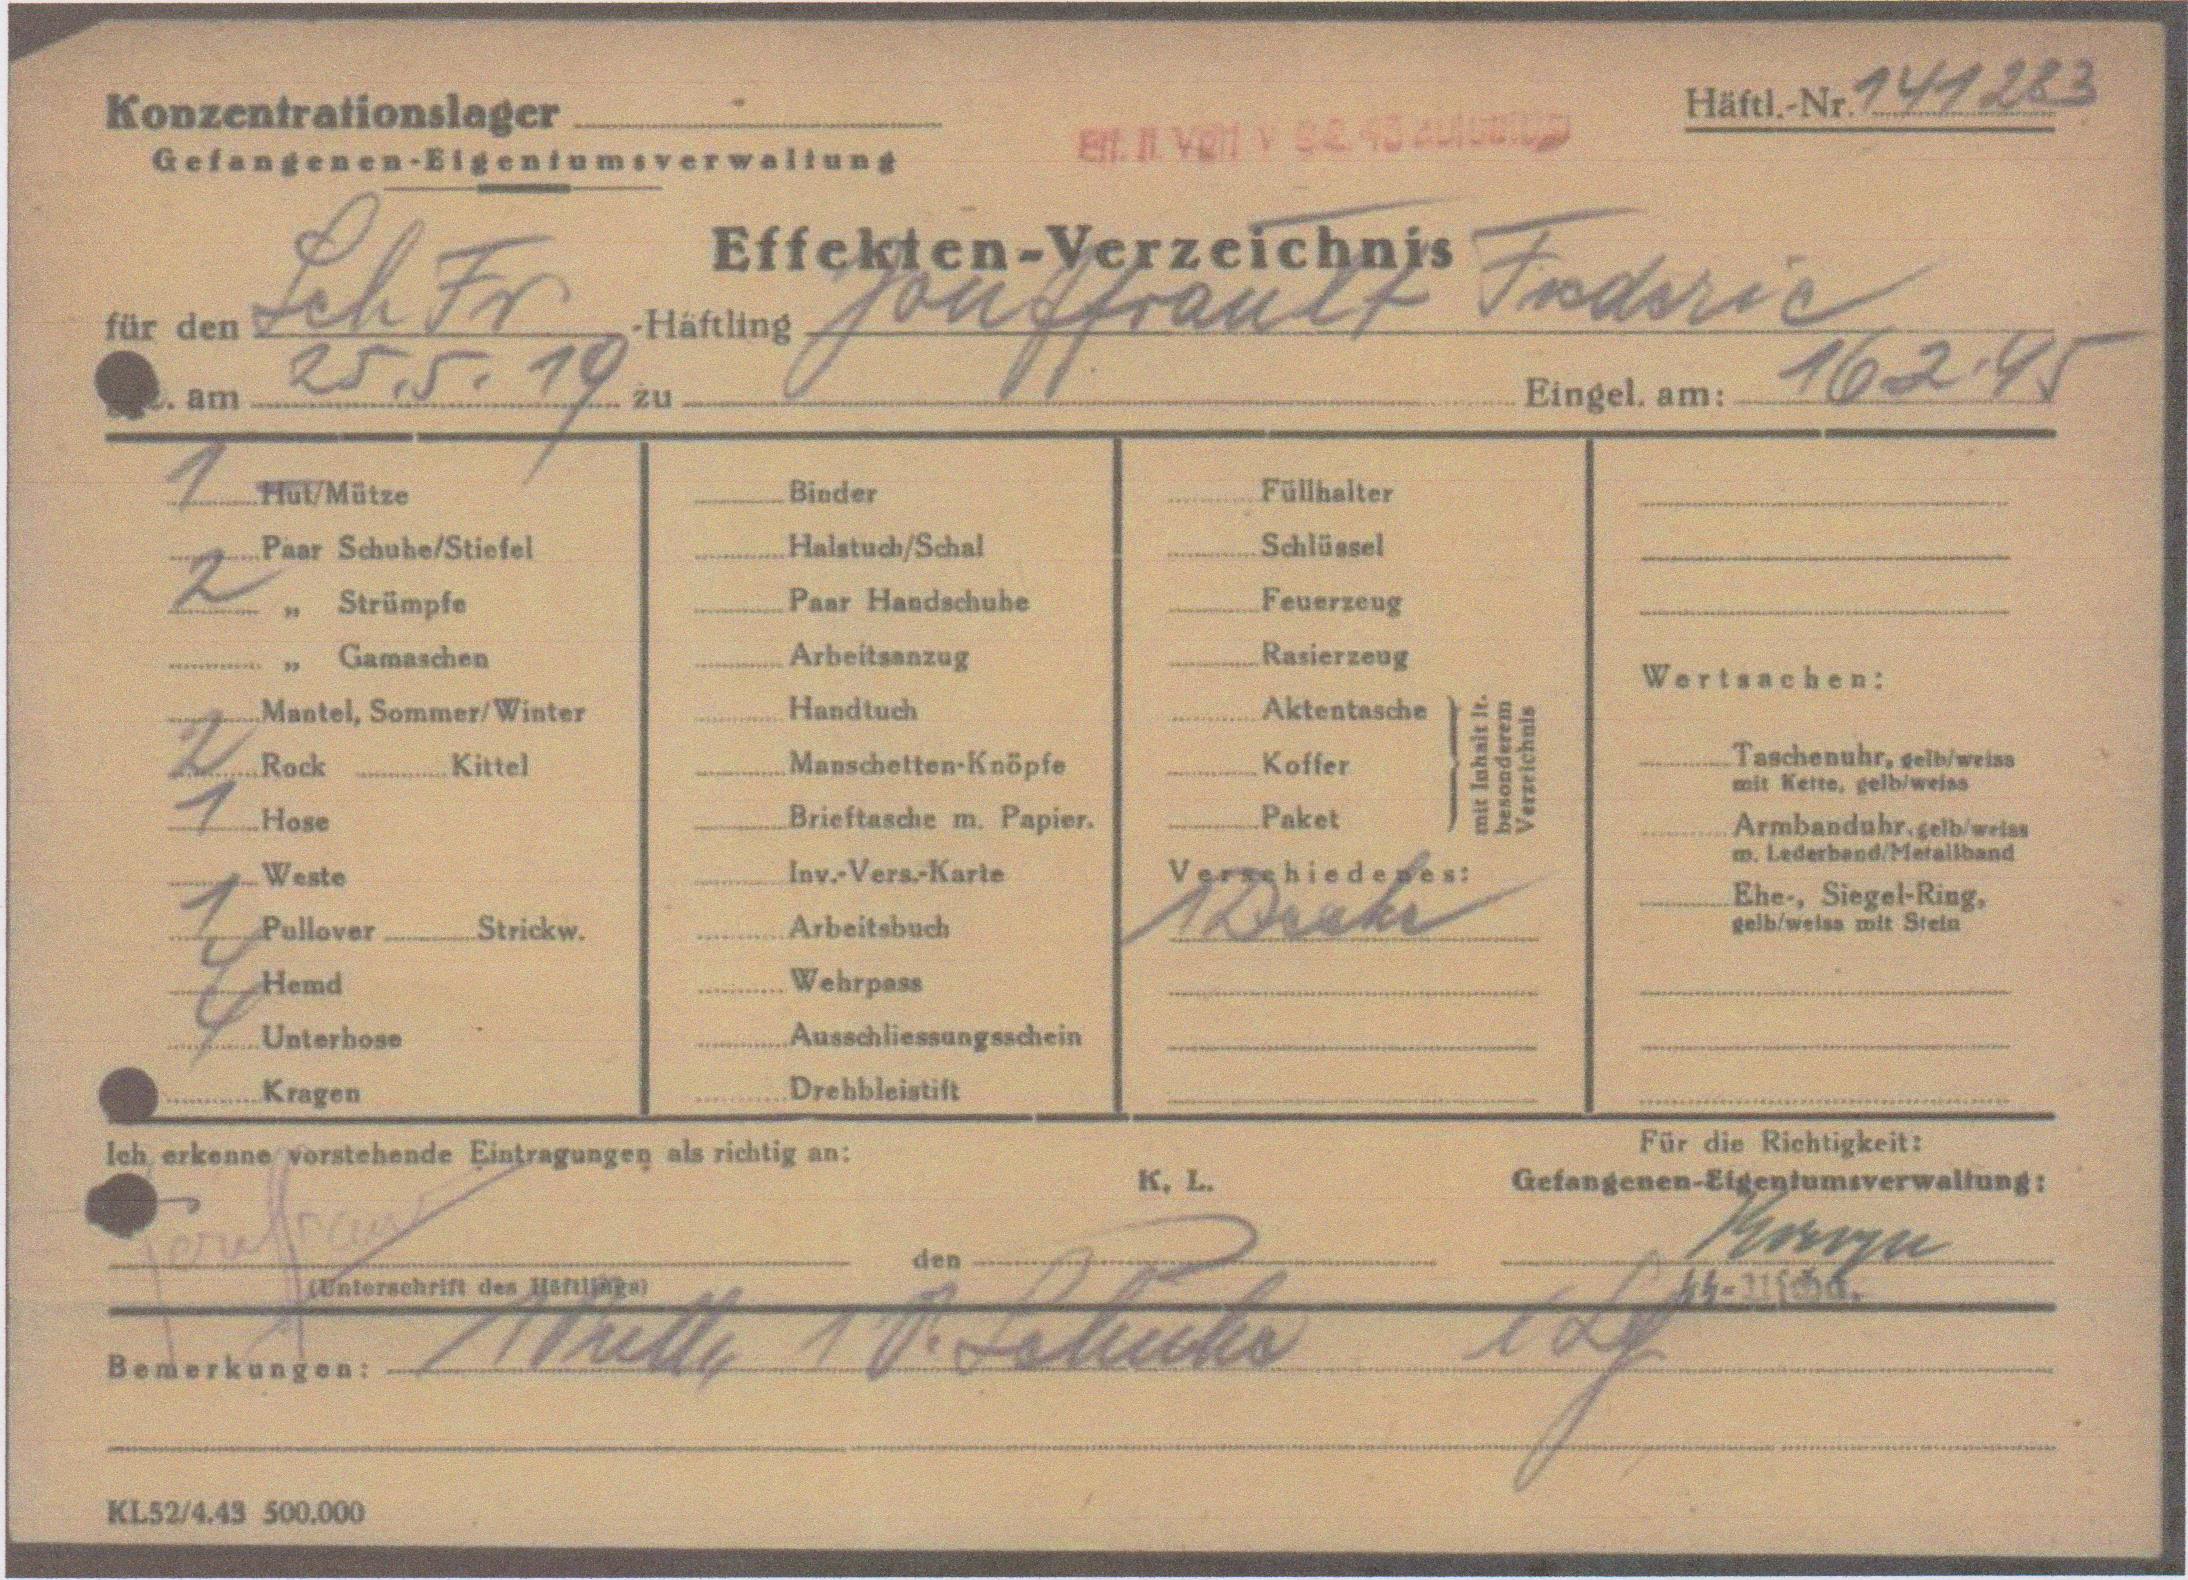 Konzentrationslager
Häftl.-Nr. 141283
Gefangenen-Eigentumsverwaltung
Effekten-Verzeichnis
für den Sch Fr -Häftling Jouffrault Frederic
am 25.5.19 zu Eingel. am: 16 2.45
1 Hut/Mütze
Paar Schuhe/Stiefel
2 „ Strümpfe
„ Gamaschen
Mantel, Sommer/Winter
2 Rock Kittel
1 Hose
Weste
1 Pullover Strickw.
4 Hemd
4 Unterhose
Kragen
Binder
Halstuch/Schal
Paar Handschuhe
Arbeitsanzug
Handtuch
Manschetten-Knöpfe
Brieftasche m. Papier.
Inv.-Vers.-Karte
Arbeitsbuch
Wehrpass
Ausschliessungsschein
Drehbleistift
Füllhalter
Schlüssel
Feuerzeug
Rasierzeug
Aktentasche
Koffer
Paket
mit Inhalt lt.
besonderem
Verzeichnis
Verschiedenes:
1
Wertsachen:
Taschenuhr, gelb/weiss
mit Kette, gelb/weiss
Armbanduhr, gelb/weiss
m. Lederband/Metallband
Ehe-, Siegel-Ring,
gelb/weiss mit Stein
Ich erkenne vorstehende Eintragungen als richtig an:
K. L.
Für die Richtigkeit:
Gefangenen-Eigentumsverwaltung:
den
(Unterschrift des Häftlings)
Bemerkungen: 1 1 P. Schuhe
KL52/4.43 500.000